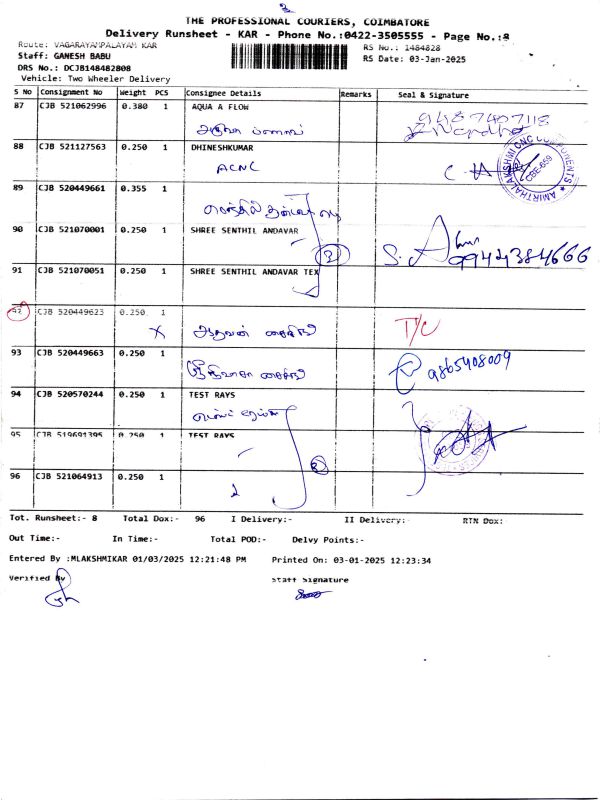 2
THE PROFESSIONAL COURIERS, COIMBATORE
Delivery Runsheet - KAR - Phone No.:0422-3505555 - Page No.:8
Route: VAGARAYAMPALAYAM KAR
RS No.: 1484828
Staff: GANESH BABU
RS Date: 03-Jan-2025
DRS No.: DCJB148482808
Vehicle: Two Wheeler Delivery
S No Consignment No Weight PCS Consignee Details Remarks Seal & Signature
87 CJB 521062996 0.380 1 AQUA A FLOW
9487407118
88 CJB 521127563 0.250 1 DHINESHKUMAR
ACNC
AMRTHALAKSHMI CNC COMPONENTS
CBE-659
89 CJB 520449661 0.355 1
90 CJB 521070001 0.250 1 SHREE SENTHIL ANDAVAR
2
S. 9944384666
91 CJB 521070051 0.250 1 SHREE SENTHIL ANDAVAR TEX
92 CJB 520449623 0.250 1
X ஆதவன் சைசிங் T/C
93 CJB 520449663 0.250 1
9865908009
94 CJB 520570244 0.250 1 TEST RAYS
95 CJB 519691395 0.250 1 TEST RAYS
96 CJB 521064913 0.250 1
Tot. Runsheet:- 8 Total Dox:- 96 I Delivery:- II Delivery:- RTN Dox:-
Out Time:- In Time:- Total POD:- Delvy Points:-
Entered By :MLAKSHMIKAR 01/03/2025 12:21:48 PM Printed On: 03-01-2025 12:23:34
Verified By Staff Signature